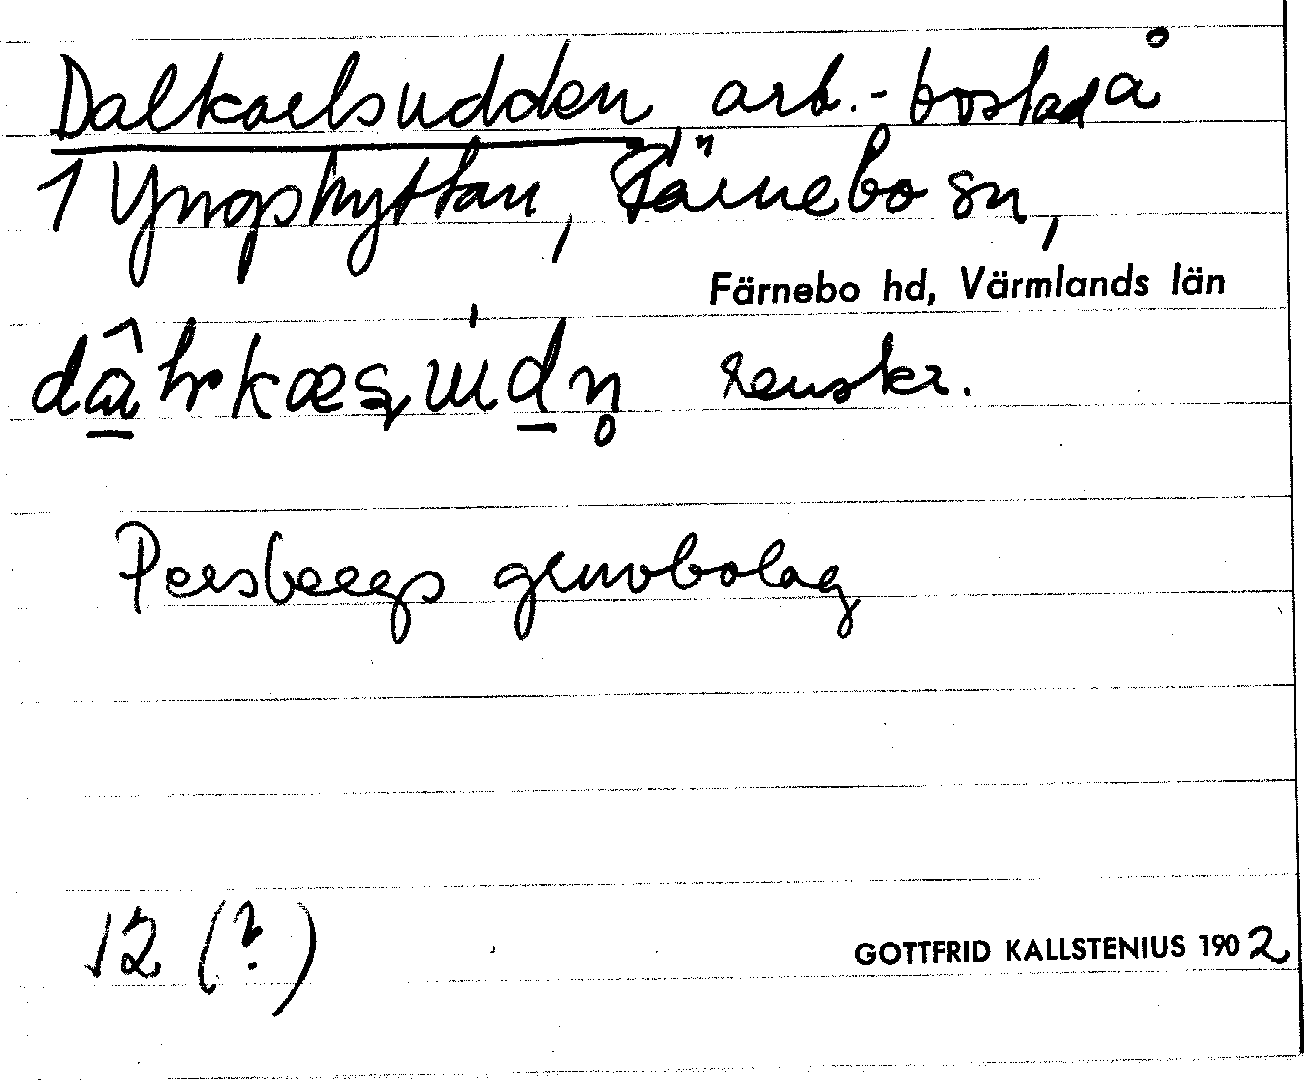 Dalkarlsudden, arb.-bostad å
1 Yngshyttan, Färnebo sn,
Färnebo hd, Värmlands län
renskr.
Persbergs gruvbolag
12 (?)
GOTTFRID KALLSTENIUS 1902